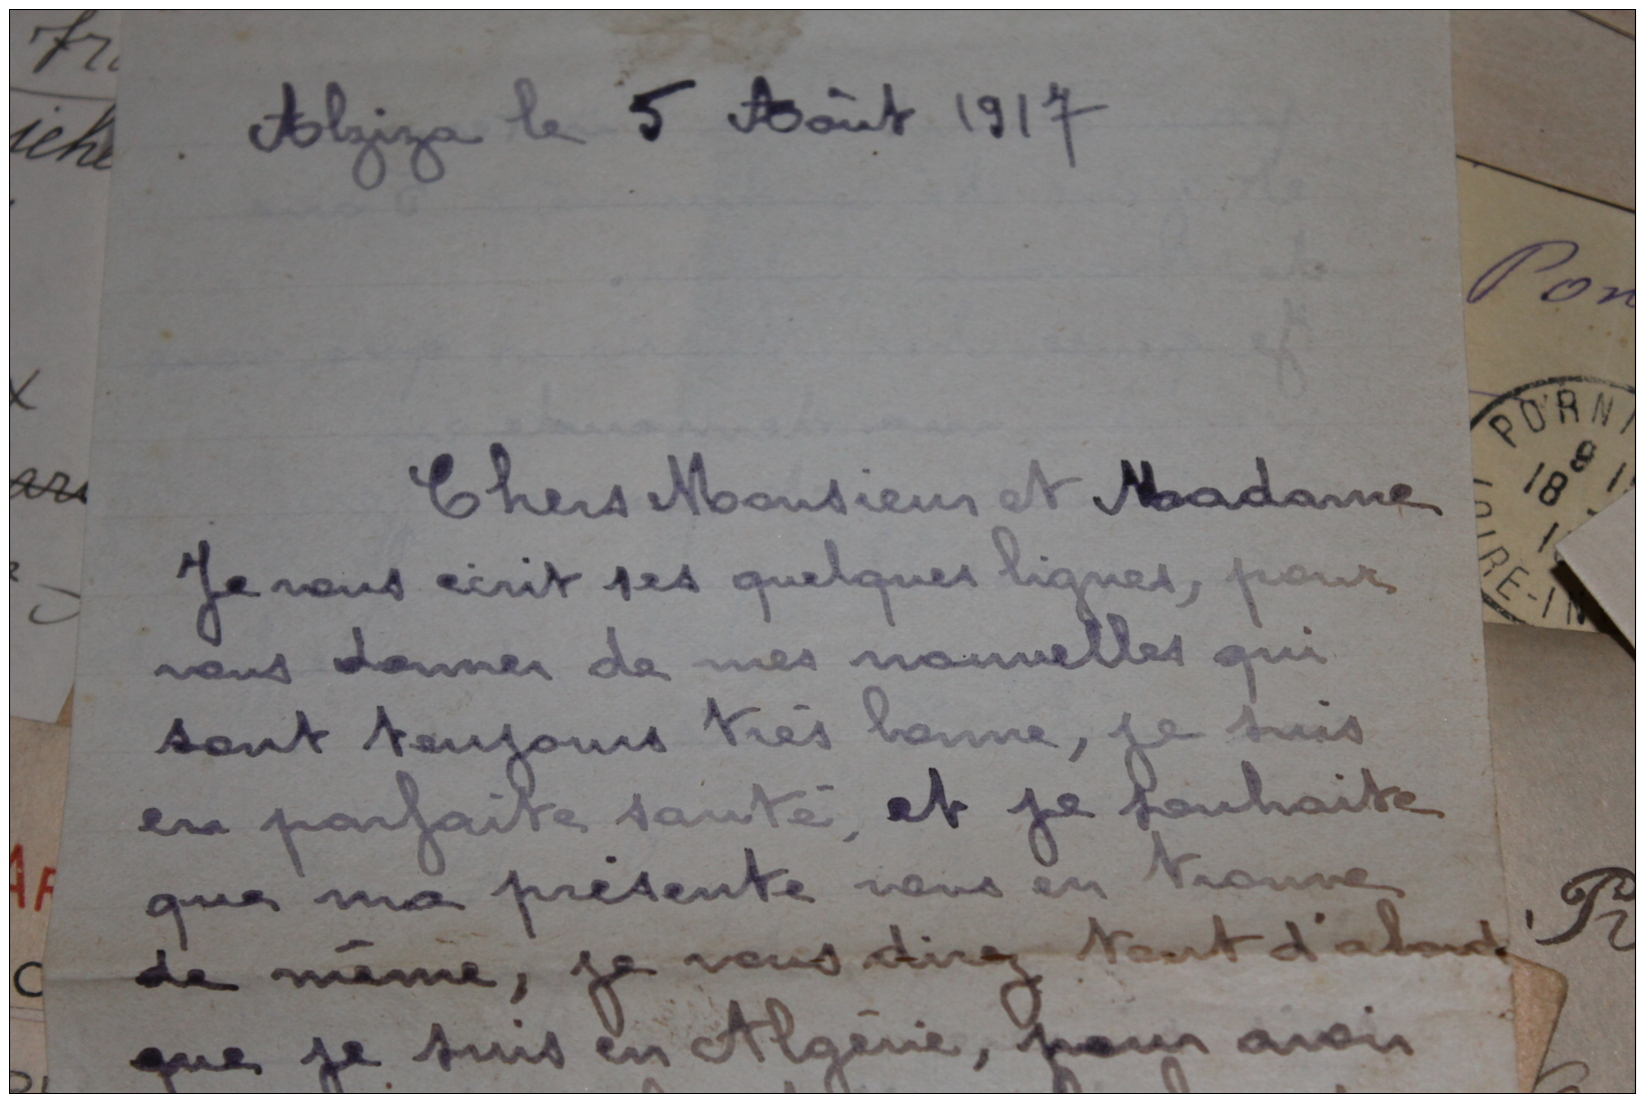 Abziza le 5 Août 1917
Chers Monsieur et Madame
Je vous écrit ses quelques lignes, pour
vous donner de mes nouvelles qui
sont toujours très bonne, je suis
en parfaite santé, et je souhaite
que ma présente vous en trouve
de même, je vous direz tout d'abord
que je suis en Algérie, pour avoir
Pon
PORNI
9
18
OIRE-IN